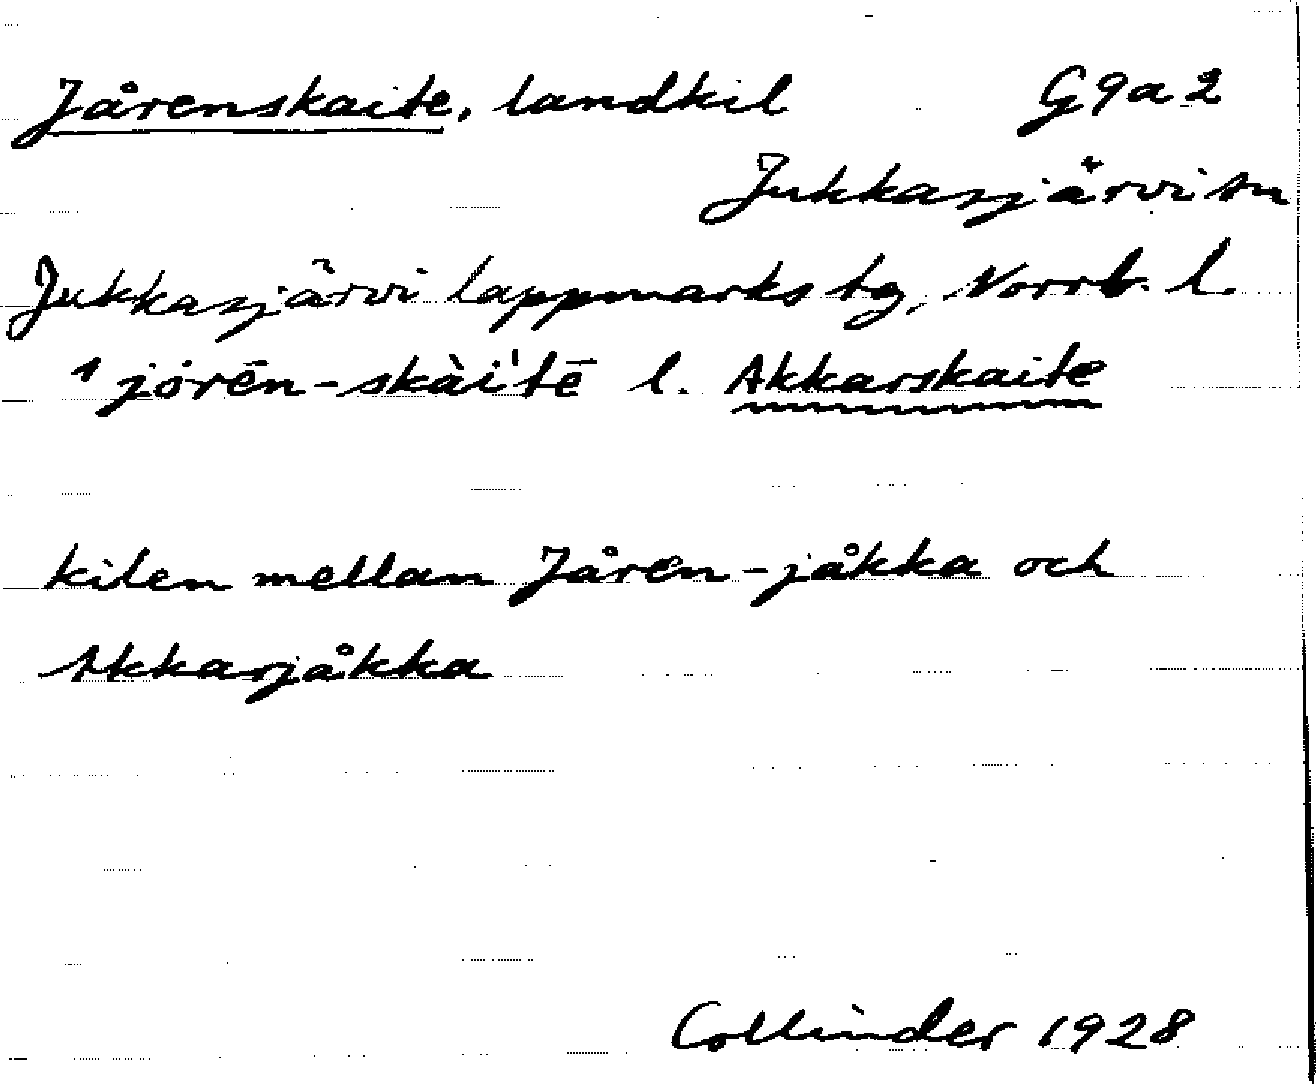 Jårenskaite, landkil G9a2
Jukkasjärvi sn
Jukkasjärvi lappmarks tg, Norrb. l.
1 jȯrēn-skài'tē l. Akkarskaite
kilen mellan Jåren-jåkka och
Akkarjåkka
Collinder 1928